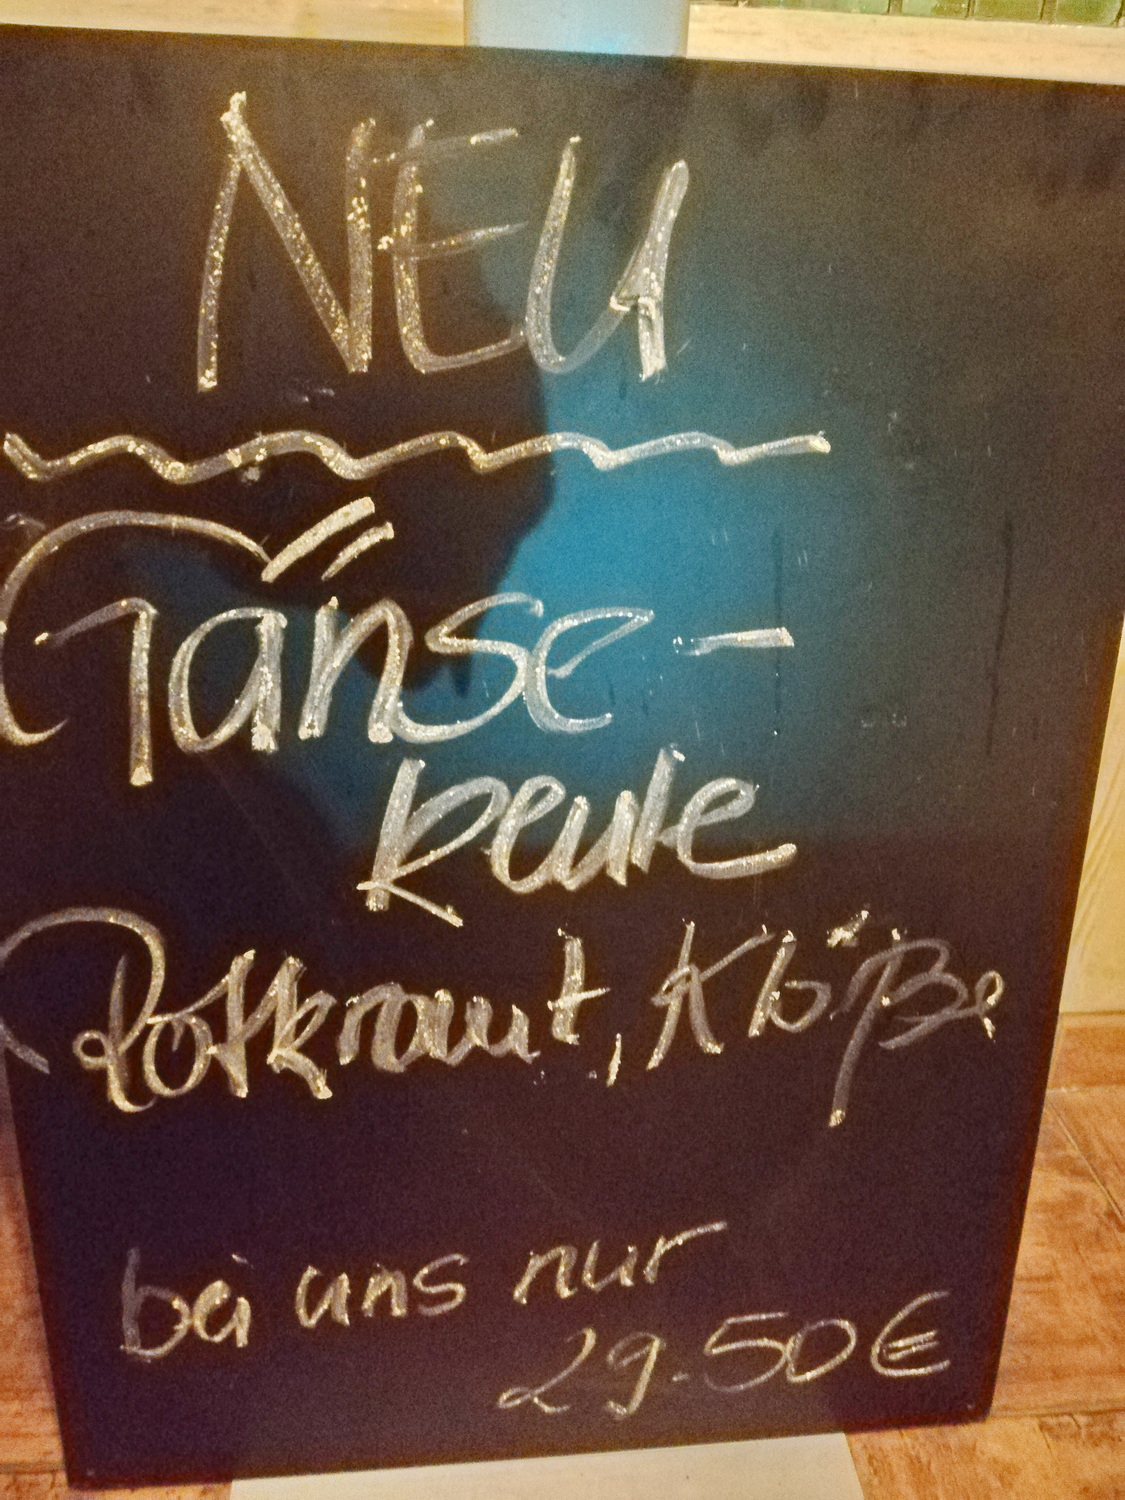 NEU
Gänse-
keule
Rotkraut, Klöße
bei uns nur
29.50€